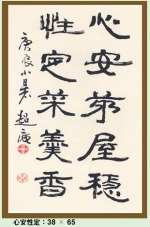 心安茅屋穩
性定菜羹香
庚辰小暑 趙戚
心安性定：38 × 65